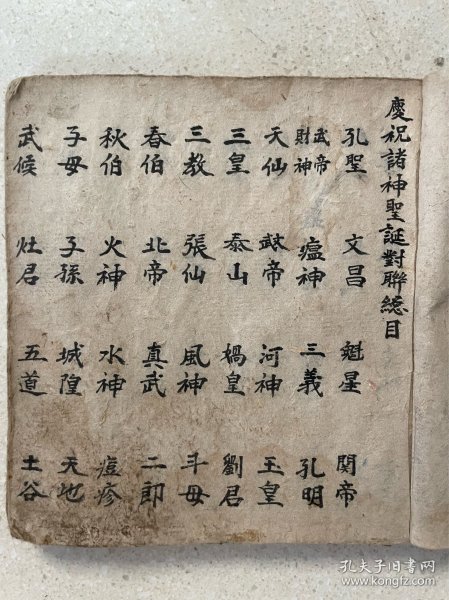 慶祝諸神聖誕對聯總目
孔聖 文昌 魁星 関帝
武帝財神 瘟神 三義 孔明
天仙 武帝 河神 玉皇
三皇 泰山 媧皇 劉君
三教 張仙 風神 斗母
春伯 北帝 真武 二郎
秋伯 火神 水神 痘疹
子母 子孫 城隍 天地
武候 灶君 五道 土谷
孔夫子旧书网
www.kongfz.com